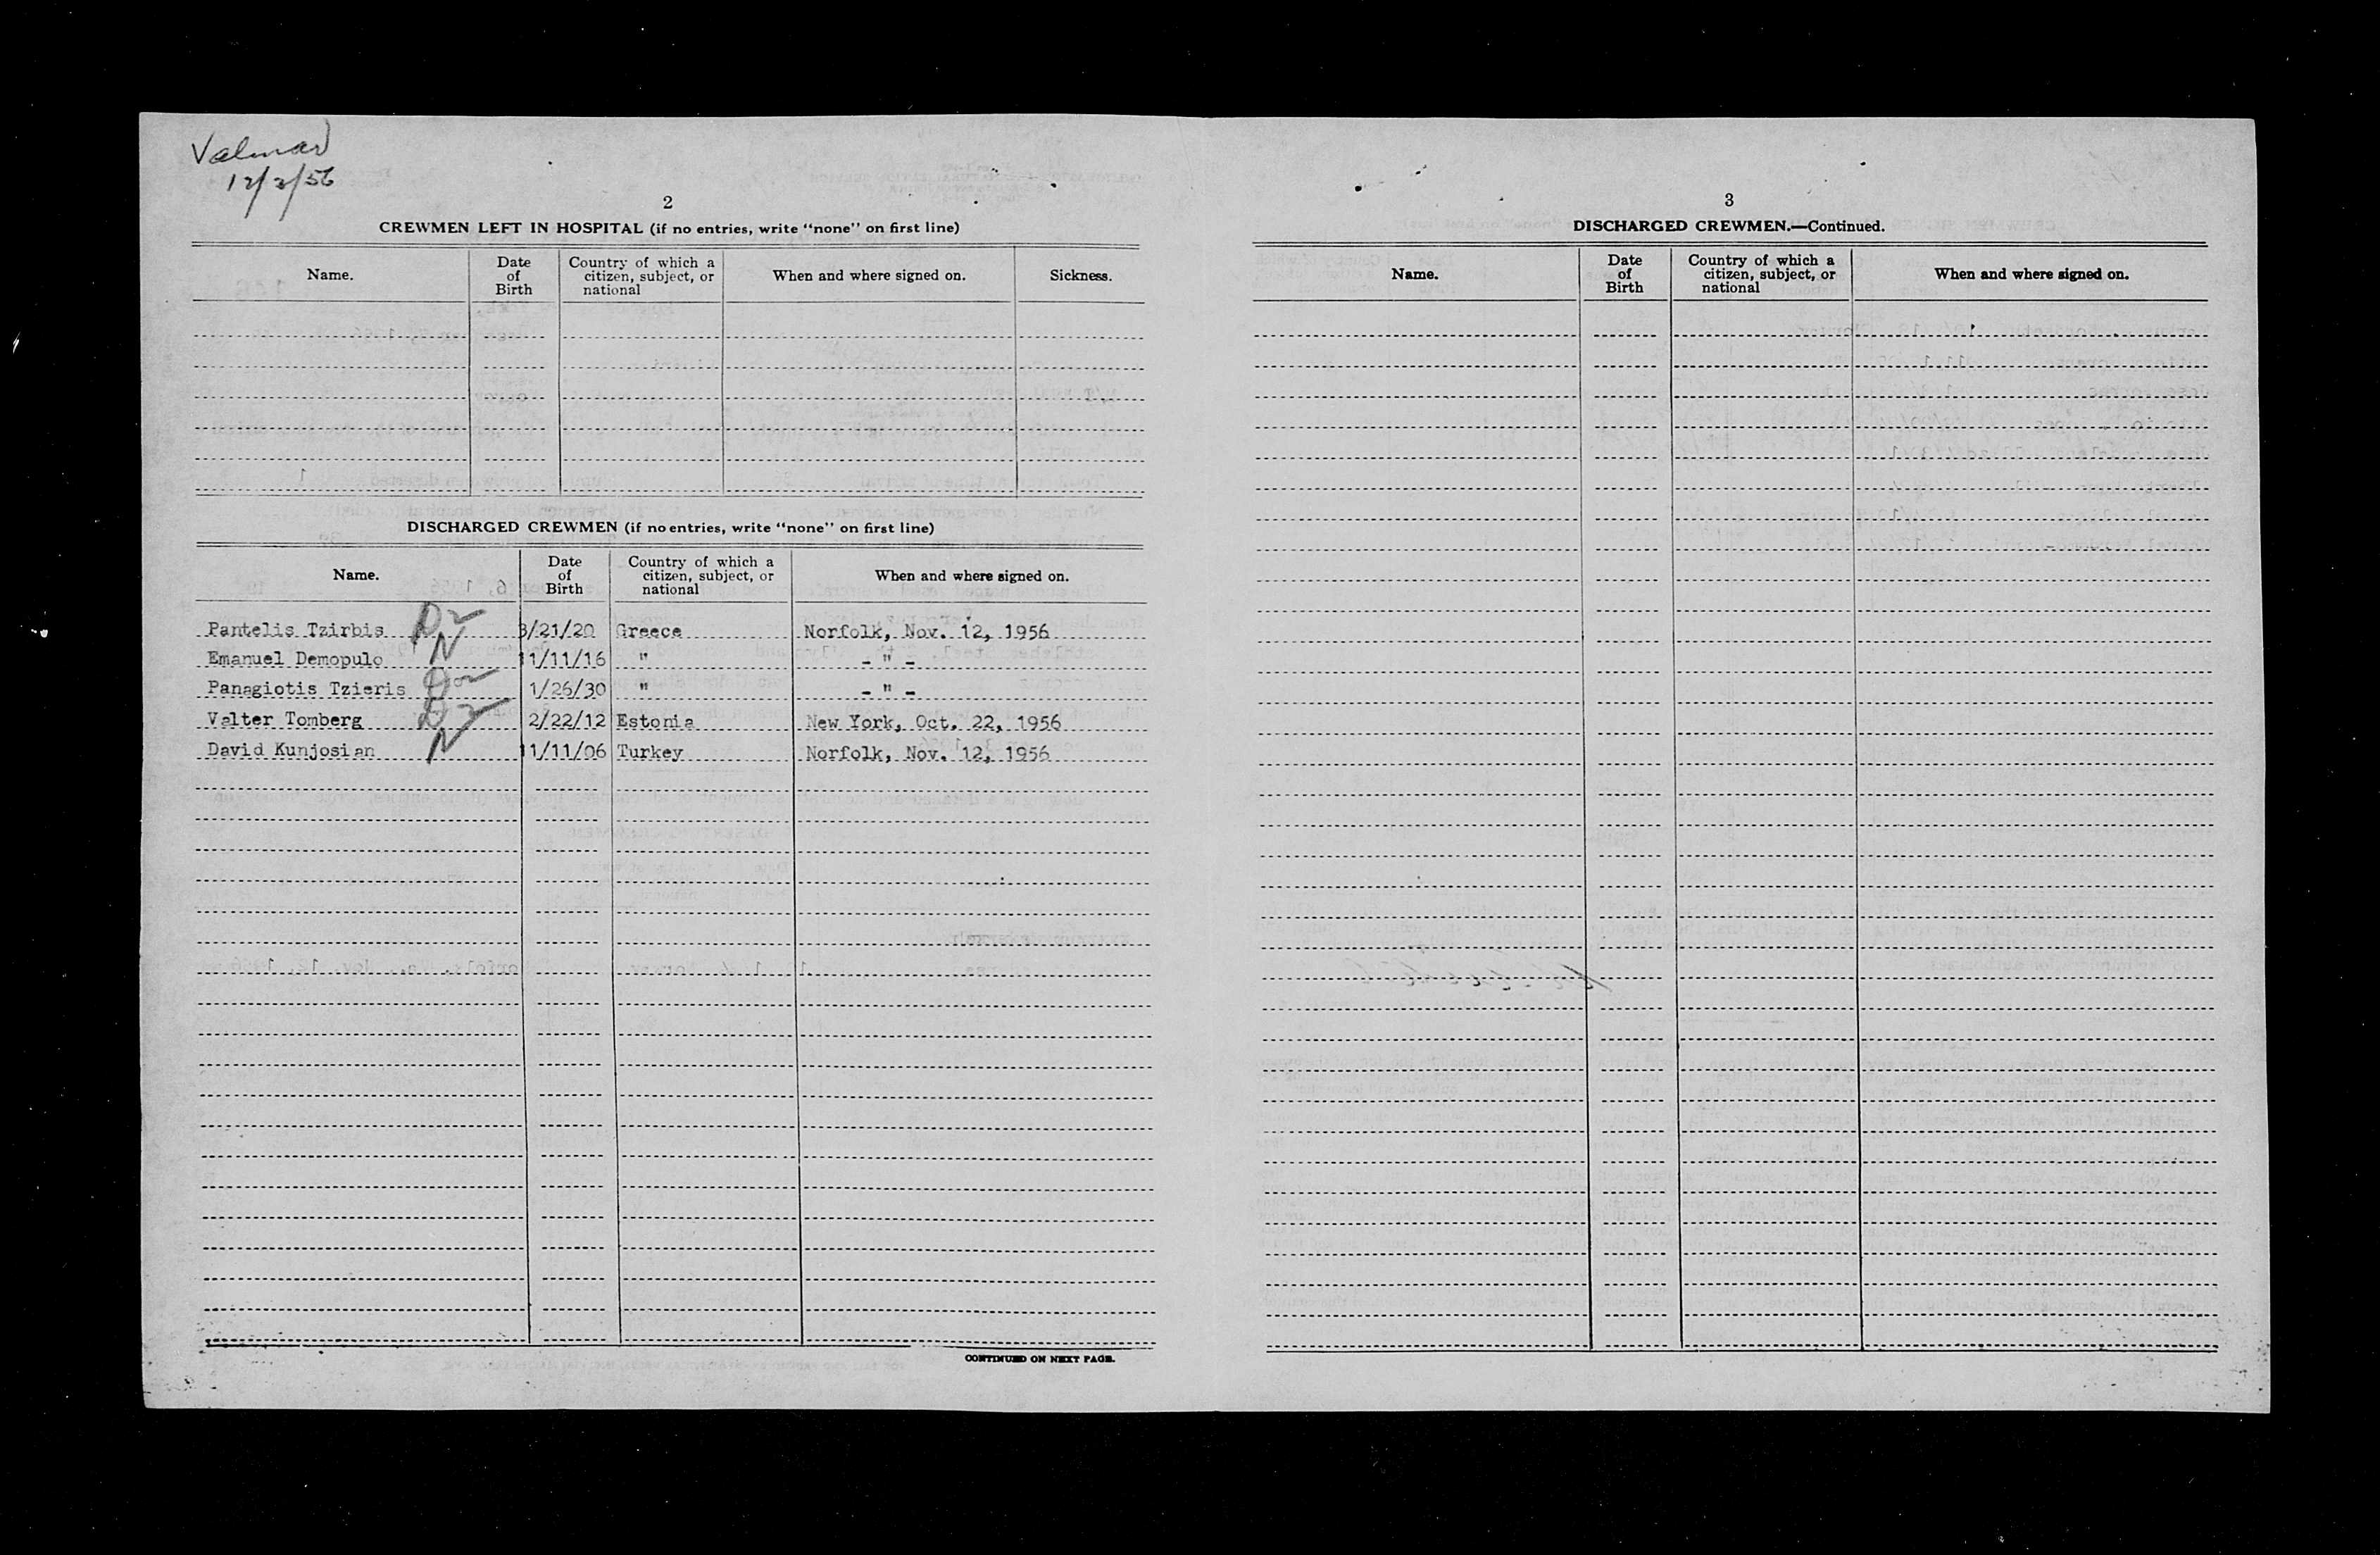 Valmar
12/3/56
2
CREWMEN LEFT IN HOSPITAL (if no entries, write "none" on first line)
Name. Date of Birth Country of which a citizen, subject, or national When and where signed on. Sickness.
DISCHARGED CREWMEN (if no entries, write "none" on first line)
Name. Date of Birth Country of which a citizen, subject, or national When and where signed on.
Pantelis Tzirbis 3/21/20 Greece Norfolk, Nov. 12, 1956
Emanuel Demopulo N 11/11/16 " - " -
Panagiotis Tzieris 1/26/30 " - " -
Valter Tomberg 2/22/12 Estonia New York, Oct. 22, 1956
David Kunjosian N 11/11/06 Turkey Norfolk, Nov. 12, 1956
CONTINUED ON NEXT PAGE.
3
DISCHARGED CREWMEN.—Continued.
Name. Date of Birth Country of which a citizen, subject, or national When and where signed on.